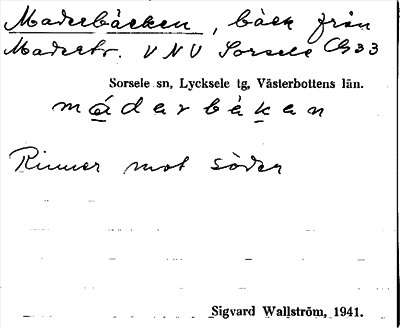 Maderbäcken, bäck från
Madertr. V N V Sorsele Cb 33
Sorsele sn, Lycksele tg, Västerbottens län.
m á d e r b è k e n
Rinner mot söder
Sigvard Wallström, 1941.